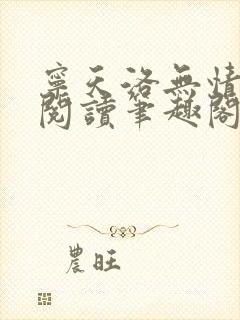 寧天洛無情
閱讀筆趣閣
農旺